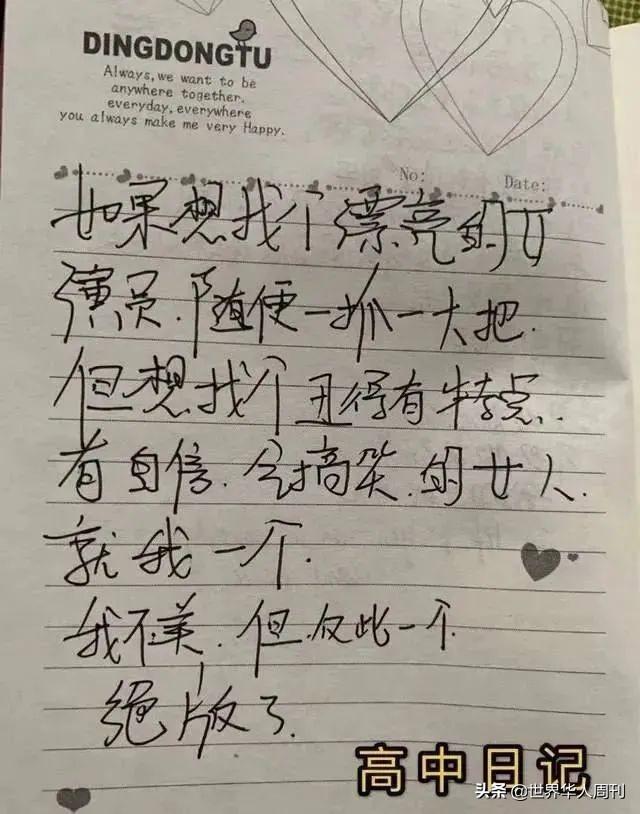 DINGDONGTU
Always, we want to be
anywhere together.
everyday, everywhere
you always make me very Happy.
No:
Date:
如果想找个漂亮的女
演员.随便一抓一大把.
但想找个丑得有特点.
有自信.会搞笑.的女人.
就我一个.
我不美.但仅此一个.
绝版了.
高中日记
头条@世界华人周刊